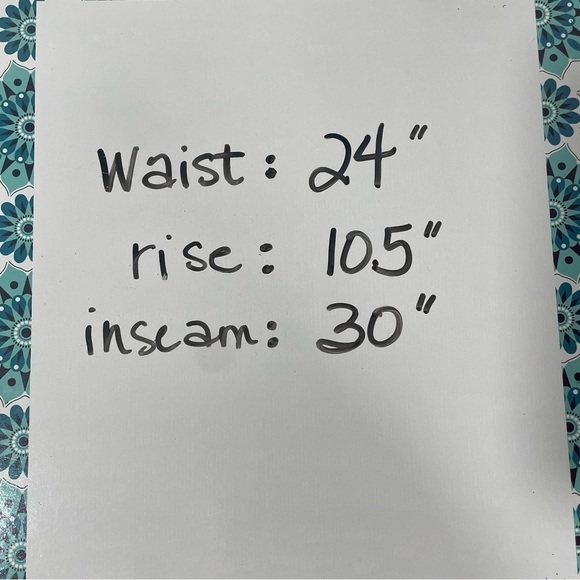 Waist: 24"
rise: 105"
inseam: 30"